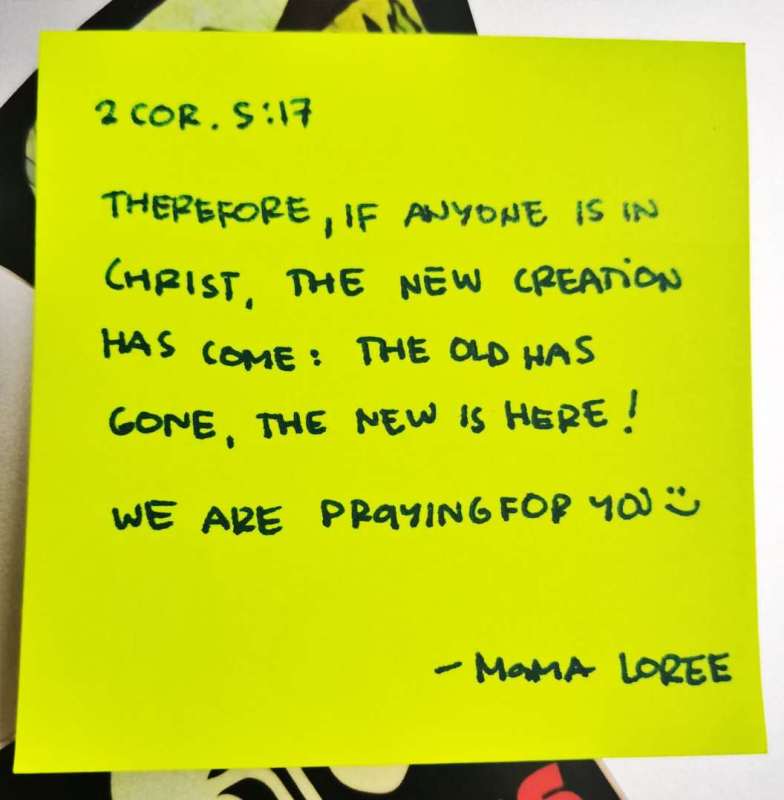 2 COR. 5:17
THEREFORE, IF ANYONE IS IN
CHRIST, THE NEW CREATION
HAS COME: THE OLD HAS
GONE, THE NEW IS HERE!
WE ARE PRAYING FOR YOU
- MAMA LOREE